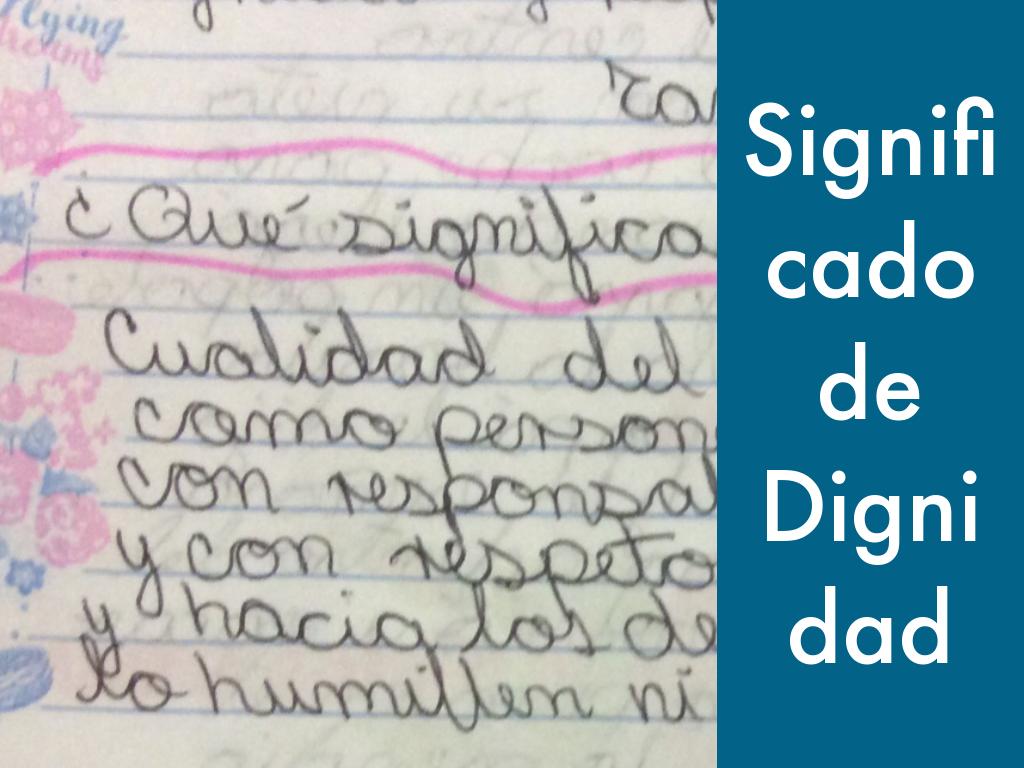 Flying
dreams
¿Qué significa
Cualidad del
como person
con responsa
y con respeto
y hacia los de
lo humillen ni
Signifi
cado
de
Digni
dad